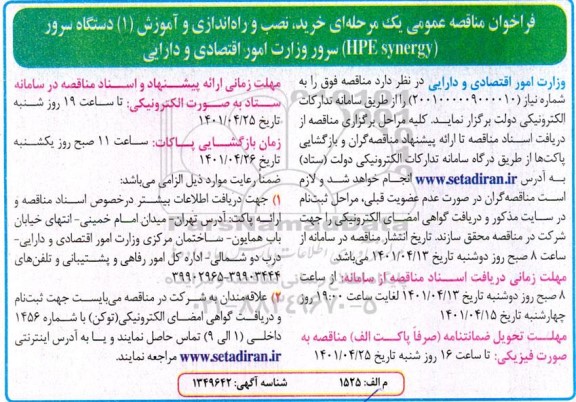 فراخوان مناقصه عمومی یک مرحله‌ای خرید، نصب و راه‌اندازی و آموزش (۱) دستگاه سرور
(HPE synergy) سرور وزارت امور اقتصادی و دارایی
وزارت امور اقتصادی و دارایی در نظر دارد مناقصه فوق را به
شماره نیاز (۲۰۰۱۰۰۰۰۰۹۰۰۰۰۱۰) را از طریق سامانه تدارکات
الکترونیکی دولت برگزار نمایید. کلیه مراحل برگزاری مناقصه از
دریافت اسناد مناقصه تا ارائه پیشنهاد مناقصه‌گران و بازگشایی
پاکت‌ها از طریق درگاه سامانه تدارکات الکترونیکی دولت (ستاد)
به آدرس www.setadiran.ir انجام خواهد شد و لازم
است مناقصه‌گران در صورت عدم عضویت قبلی، مراحل ثبت‌نام
در سایت مذکور و دریافت گواهی امضای الکترونیکی را جهت
شرکت در مناقصه محقق سازند. تاریخ انتشار مناقصه در سامانه از
ساعت ۸ صبح روز دوشنبه تاریخ ۱۴۰۱/۰۴/۱۳ می‌باشد.
مهلت زمانی دریافت اسناد مناقصه از سامانه: از ساعت
۸ صبح روز دوشنبه تاریخ ۱۴۰۱/۰۴/۱۳ لغایت ساعت ۱۹:۰۰ روز
چهارشنبه تاریخ ۱۴۰۱/۰۴/۱۵
مهلت تحویل ضمانتنامه (صرفاً پاکت الف) مناقصه به
صورت فیزیکی: تا ساعت ۱۶ روز شنبه تاریخ ۱۴۰۱/۰۴/۲۵
مهلت زمانی ارائه پیشنهاد و اسناد مناقصه در سامانه
ستاد به صورت الکترونیکی: تا ساعت ۱۹ روز شنبه
تاریخ ۱۴۰۱/۰۴/۲۵
زمان بازگشایی پاکات: ساعت ۱۱ صبح روز یکشنبه
تاریخ ۱۴۰۱/۰۴/۲۶
ضمنا رعایت موارد ذیل الزامی می‌باشد:
۱) جهت دریافت اطلاعات بیشتر درخصوص اسناد مناقصه و
ارائه پاکت: آدرس تهران- میدان امام خمینی- انتهای خیابان
باب همایون- ساختمان مرکزی وزارت امور اقتصادی و دارایی-
درب دو شمالی- اداره کل امور رفاهی و پشتیبانی و تلفن‌های
۳۹۹۰۳۴۴۴-۳۹۹۰۲۹۶۵
۲) علاقه‌مندان به شرکت در مناقصه می‌بایست جهت ثبت‌نام
و دریافت گواهی امضای الکترونیکی(توکن) با شماره ۱۴۵۶
داخلی (۱ الی ۹) تماس حاصل نمایند و یا به آدرس اینترنتی
www.setadiran.ir مراجعه نمایند.
م الف: ۱۵۲۵
شناسه آگهی: ۱۳۴۹۶۴۲